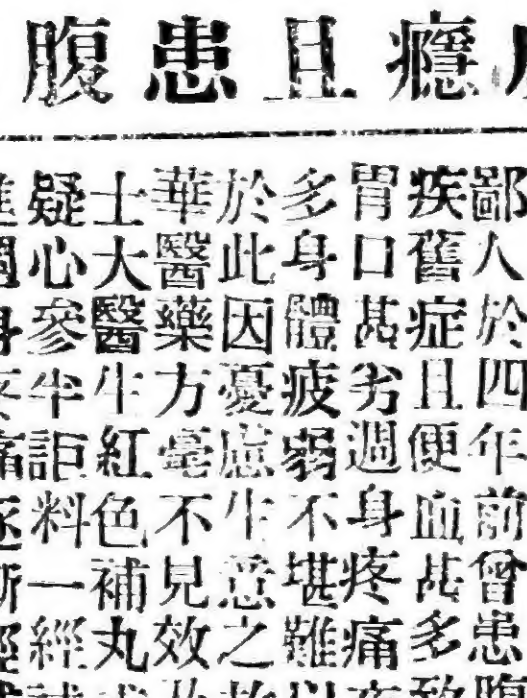 癮且患腹
鄙人於四年前曾患腹
疾舊症且便血甚多致
胃口甚劣週身疼痛
多身體疲弱不堪難以
於此因憂慮生意之故
華醫藥方毫不見效
士大醫生紅色補丸
疑心參半詎料一經試
身疼痛逐漸